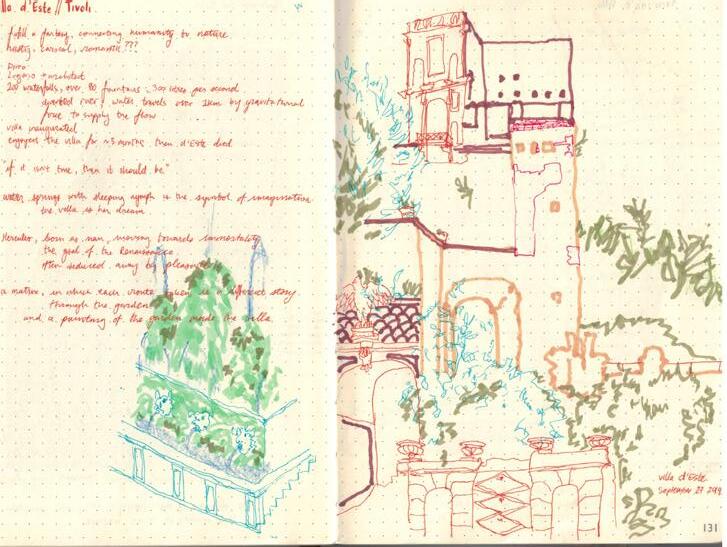 lla d'Este // Tivoli
fulfill a fantasy, connecting humanity to nature
carnal, romantic???
Pirro
Ligorio → architect
200 waterfalls, over 80 fountains : 300 litres per second
diverted river, water travels over 1km by gravitational
force to supply the flow
villa inaugurated
enjoyed the villa for ~5 months then d'Este died
"if it isn't true, then it should be"
water springs with sleeping nymph is the symbol of imagination
the villa is her dream
Hercules, born as man, moving towards immortality
the goal of the Renaissance
often seduced away by pleasure
a matrix, in which each route taken is a different story
through the garden
and a painting of the garden inside the villa
villa d'Este
September 27
131